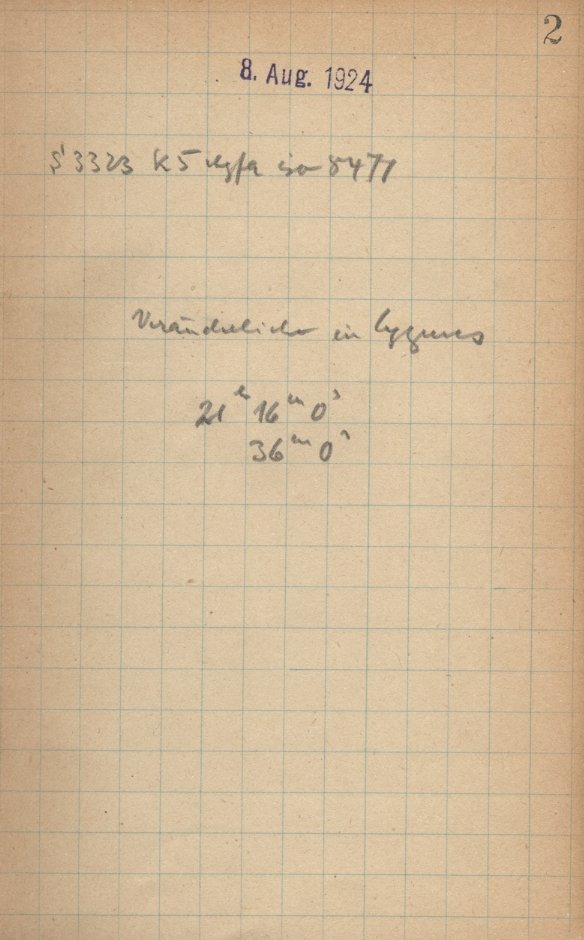 2
8. Aug. 1924
3323 K5 8471
Veränderlicher in Cygnus
21ʰ 16ᵐ 0ˢ
36ᵐ 0ˢ